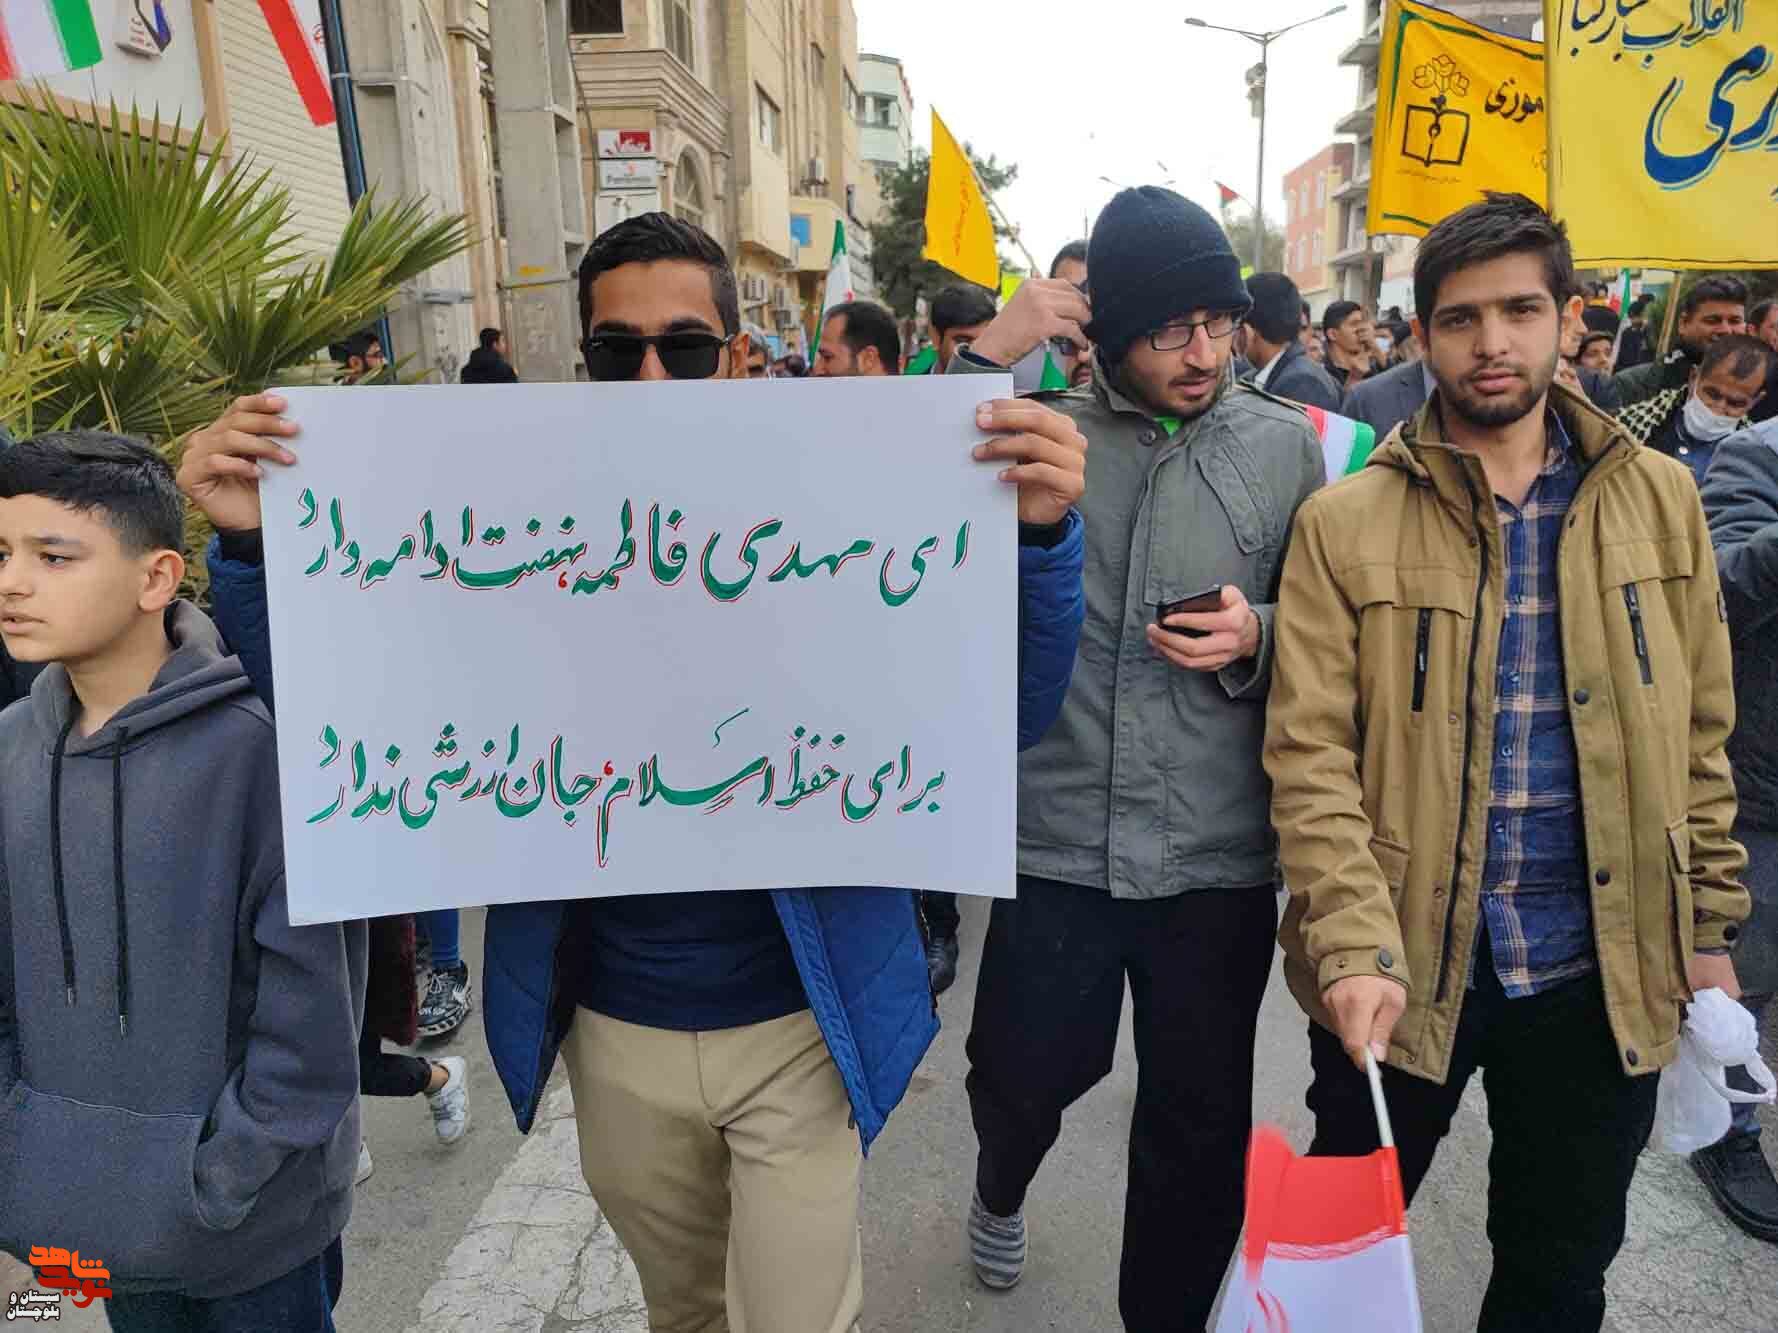 ای مهدی فاطمه، نهضتت ادامه دارد
برای حفظ اسلام، جان ارزشی ندارد
انقلاب
موزی
ری
Panasonic
نوید شاهد
سیستان و
بلوچستان